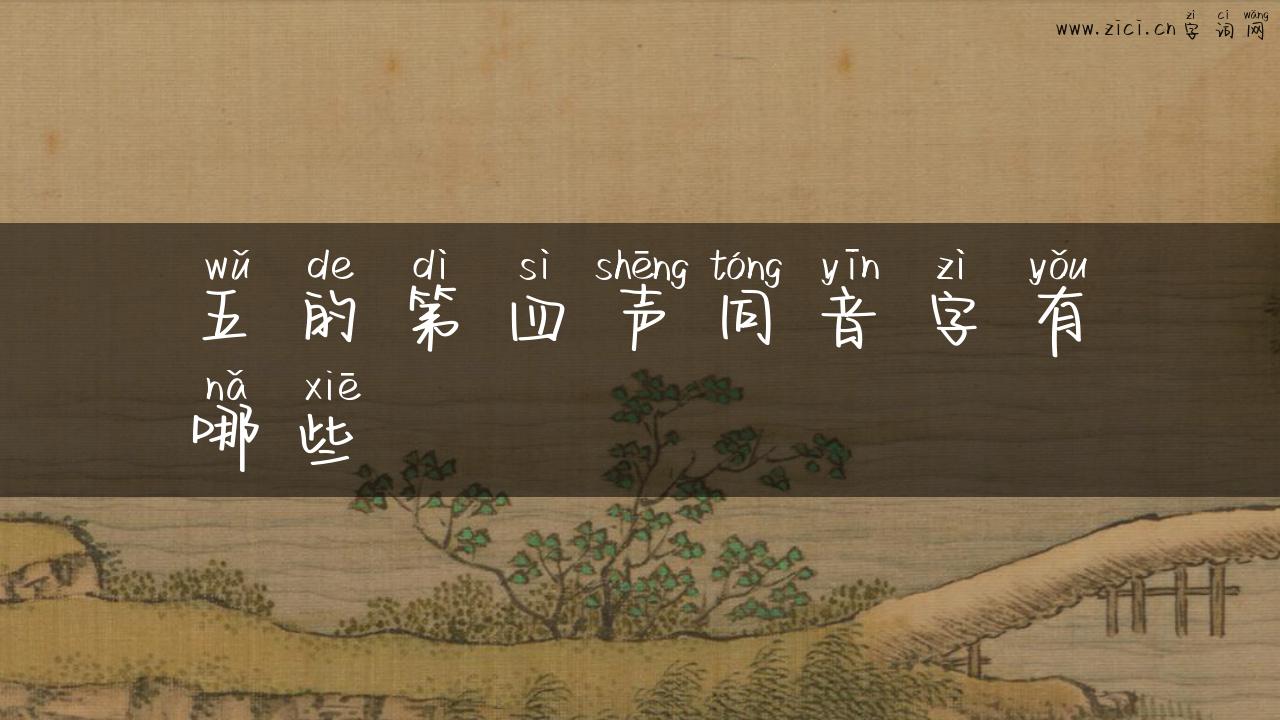 zì cí wǎng
www.zici.cn字词网
wǔ de dì sì shēng tóng yīn zì yǒu
五的第四声同音字有
nǎ xiē
哪些